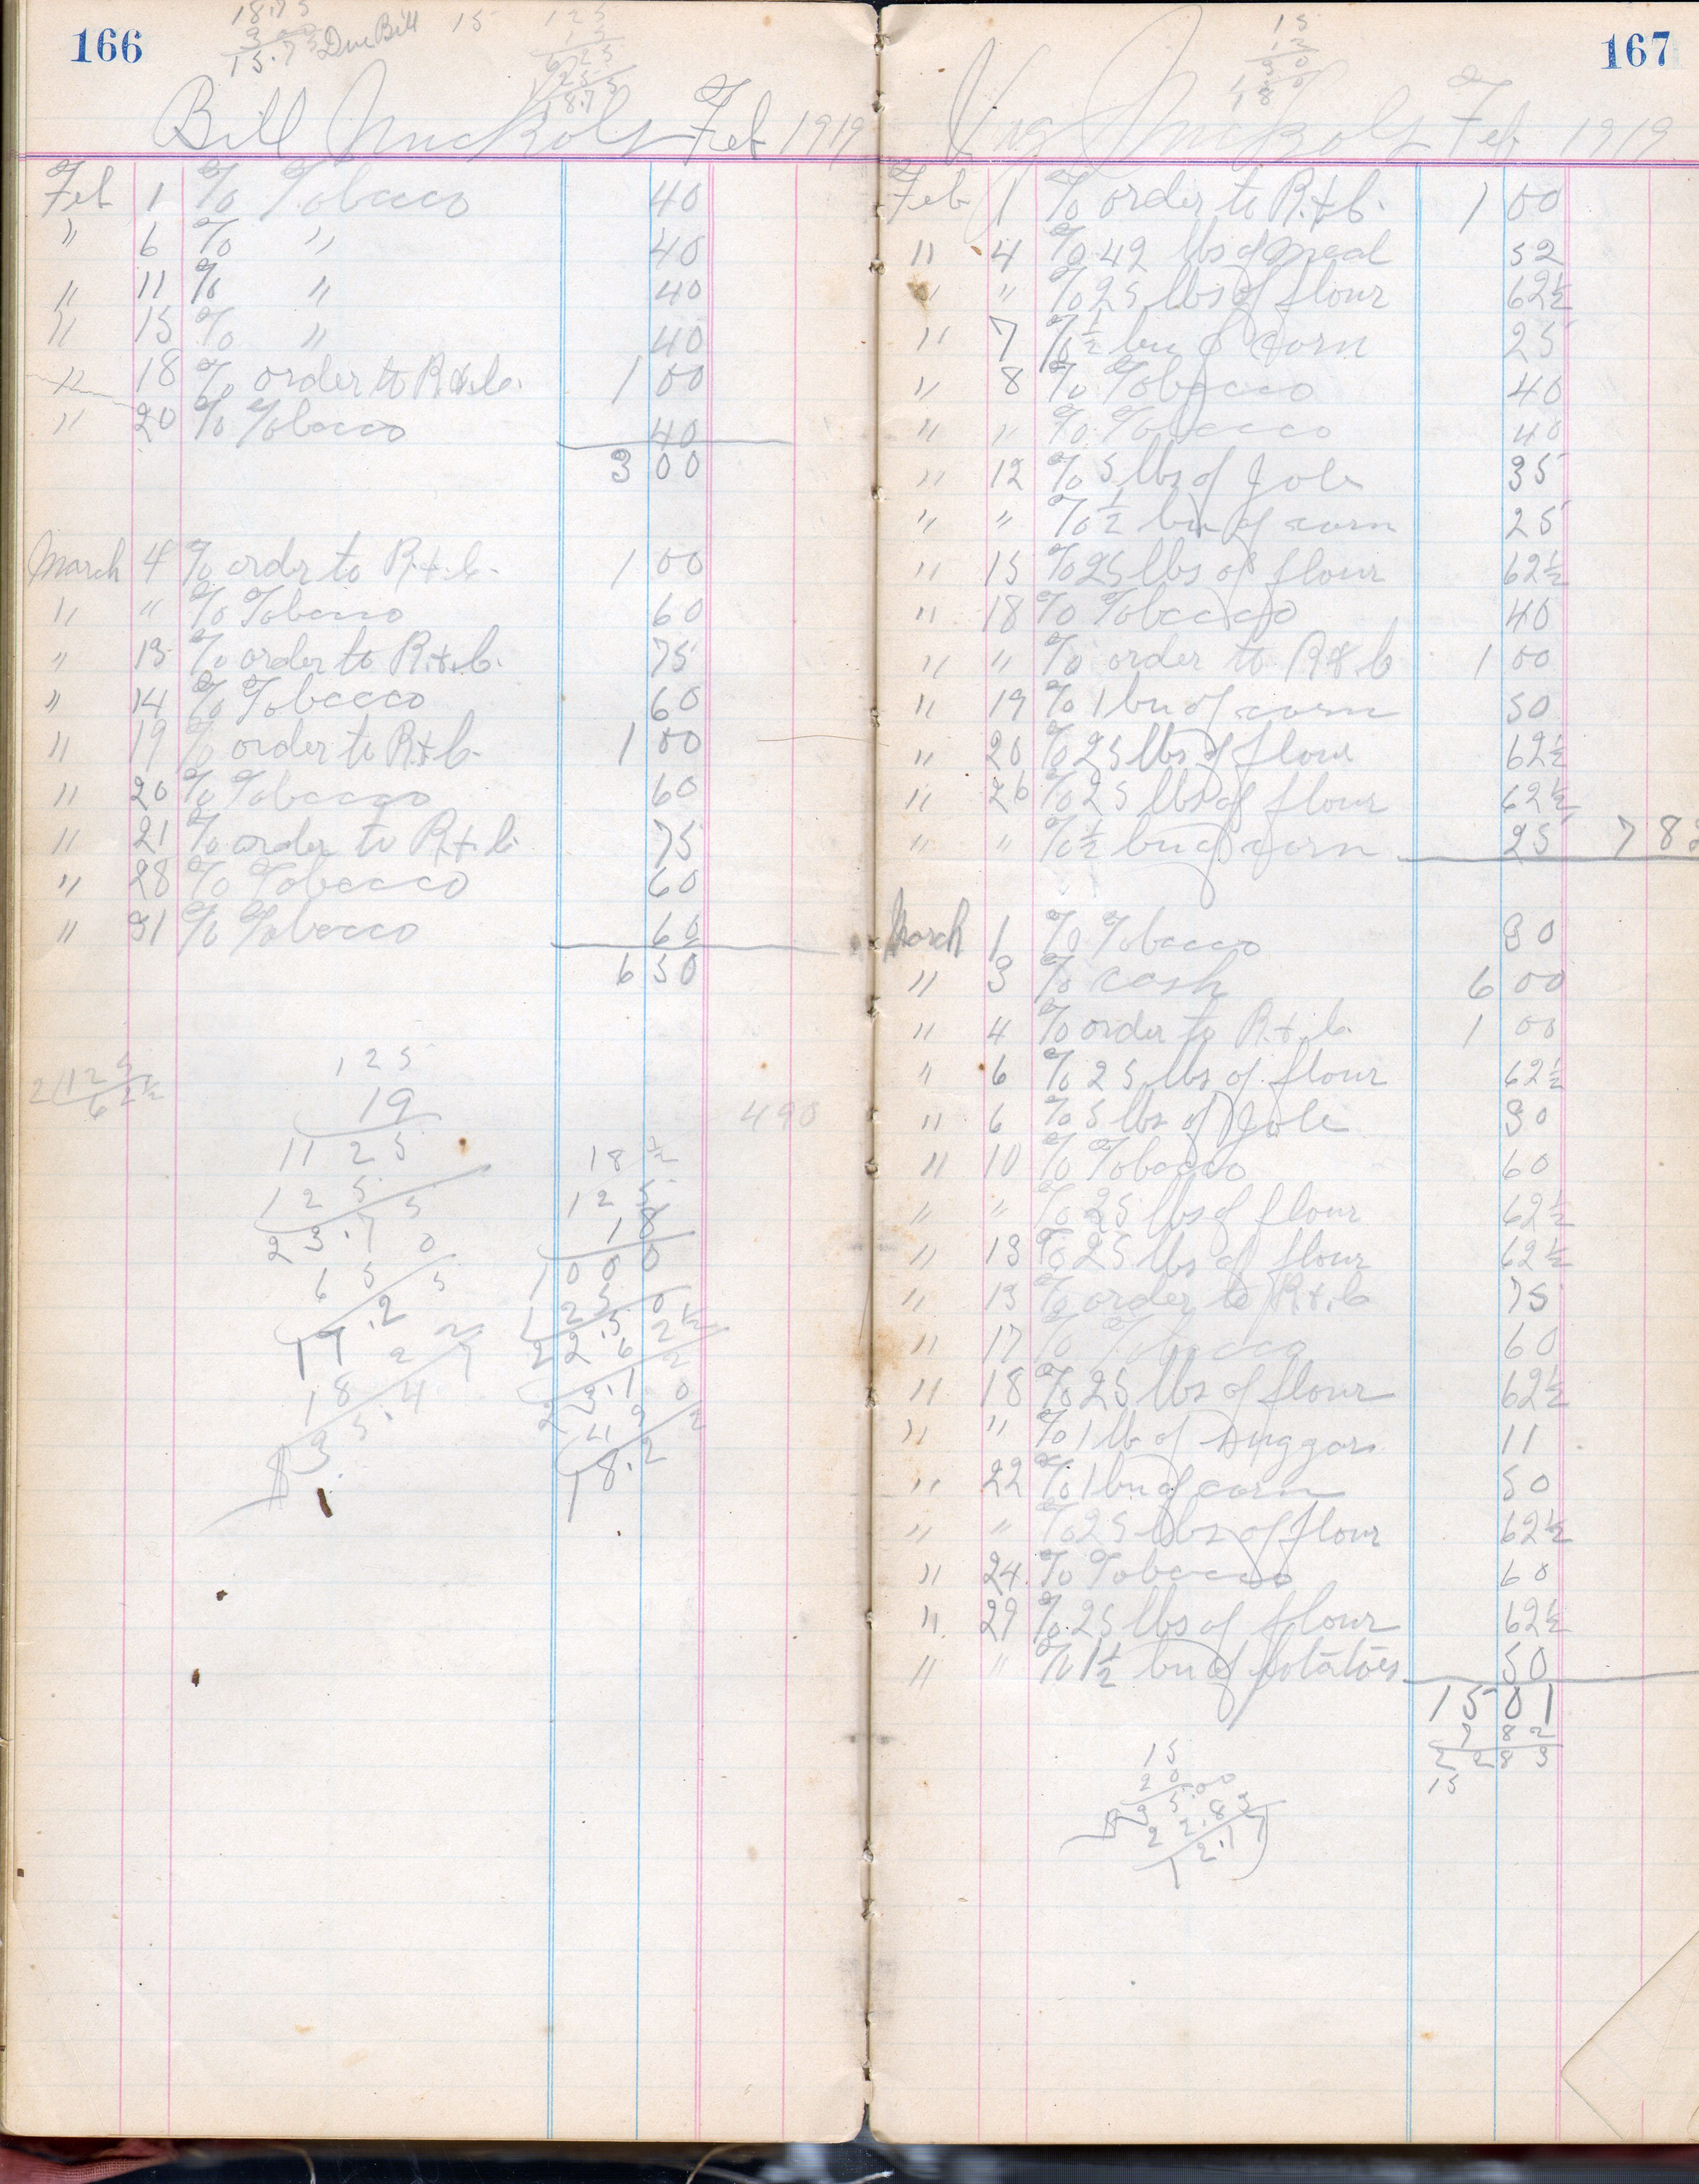 166
18.75
3 00
15.75 Due Bill
15
125
15
625
125
18.75
Bill Nuckols Feb 1919
Feb 1 % Tobacco 40
" 6 % " 40
" 11 % " 40
" 15 % " 40
" 18 % order to R.&.C. 1 00
" 20 % Tobacco 40
3 00
March 4 % order to R.&.C. 1 00
" " % Tobacco 60
" 13 % order to R.&.C. 75
" 14 % Tobacco 60
" 19 % order to R.&C. 1 00
" 20 % Tobacco 60
" 21 % order to R.&.C. 75
" 28 % Tobacco 60
" 31 % Tobacco 60
6 50
2)125
62½
125
19
1125
125
23.75
6 50
17.25
18 2
490
18½
125
18
1000
125
22.50
62½
23.12
4 90
18.22
167
15
12
30
18 0
Nuckols Feb 1919
Feb 1 % order to R.&C. 1 00
" 4 % 42 lbs of meal 52
" " % 25 lbs of flour 62½
" 7 % ½ bu of corn 25
" 8 % Tobacco 40
" " % Tobacco 40
" 12 % 5 lbs of Jole 35
" " % ½ bu of corn 25
" 15 % 25 lbs of flour 62½
" 18 % Tobacco 40
" " % order to R.&.C 1 00
" 19 % 1 bu of corn 50
" 20 % 25 lbs of flour 62½
" 26 % 25 lbs of flour 62½
" " % ½ bu of corn 25 7 82
March 1 % Tobacco 30
" 3 % cash 6 00
" 4 % order to R.&.C. 1 00
" 6 % 25 lbs of flour 62½
" 6 % 5 lbs of Jole 30
" 10 % Tobacco 60
" " % 25 lbs of flour 62½
" 13 % 25 lbs of flour 62½
" 13 % order to R.&.C 75
" 17 % Tobacco 60
" 18 % 25 lbs of flour 62½
" " % 1 lb of suggar 11
" 22 % 1 bu of corn 50
" " % 25 lbs of flour 62½
" 24 % Tobacco 60
" 29 % 25 lbs of flour 62½
" " % 1½ bu of potatoes 50
15 01
7 82
22 83
15
15
20
$35.00
22.83
12.17